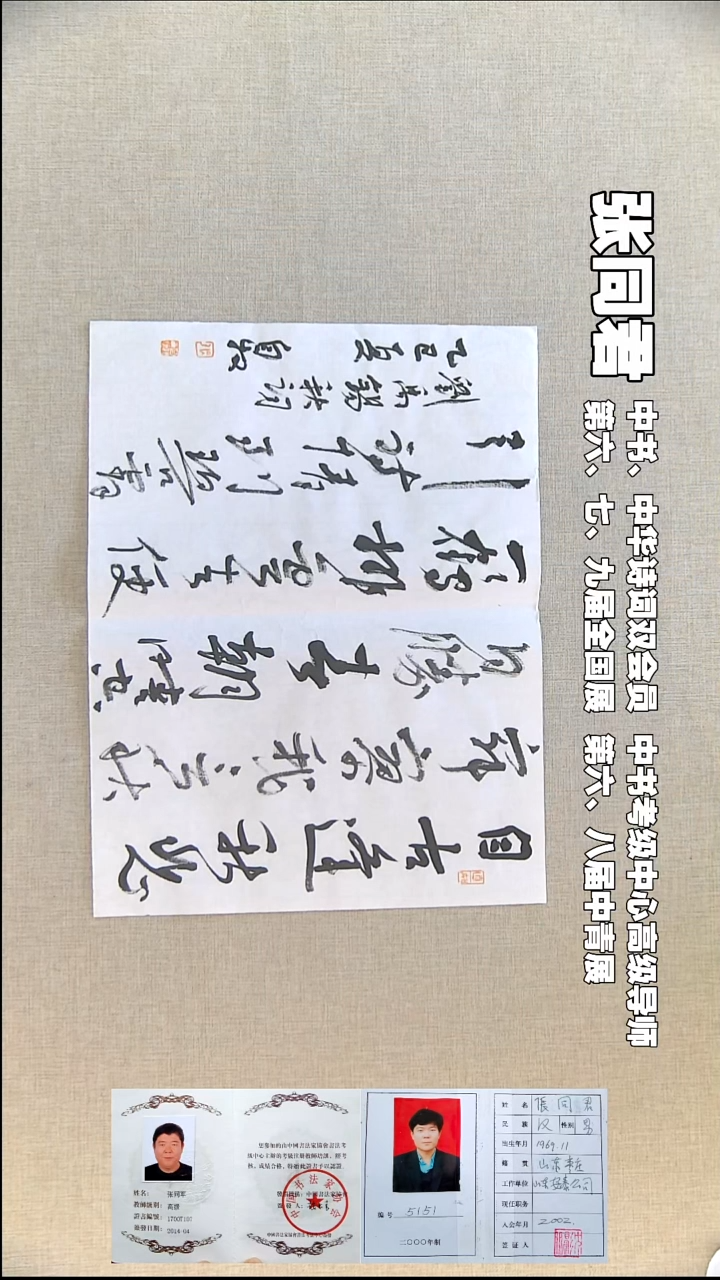 张同君
中书、中华诗词双会员 中书考级中心高级导师
第六、七、九届全国展 第六、八届中青展
自古逢秋悲
寂寥我言秋
日胜春朝晴空
一鹤排云上便
引诗情到碧霄
劉禹錫秋词
乙巳夏
姓名:
张同军
教師級別:
高级
證書編號:
簽發日期:
2014-04
中国书法家协会
编号 5151
二〇〇〇年制
姓名 張同君
民族 汉 性别 男
出生年月 1969.11
籍贯 山东枣庄
工作单位
现任职务
入会年月 2002.
签证人